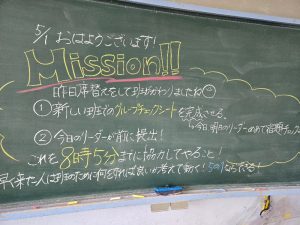 5/1 おはようございます!
Mission!!
昨日席替えをして班がかわりましたね
① 新しい班でのグループチェックシートを完成させる。
↳今日 明日のリーダー めあて 宿題チェック
② 今日のリーダーが前に提出!
これを8時5分までに協力してやること!
早く来た人は班のために何をすれば良いか考えて動く! 5の1ならできる!